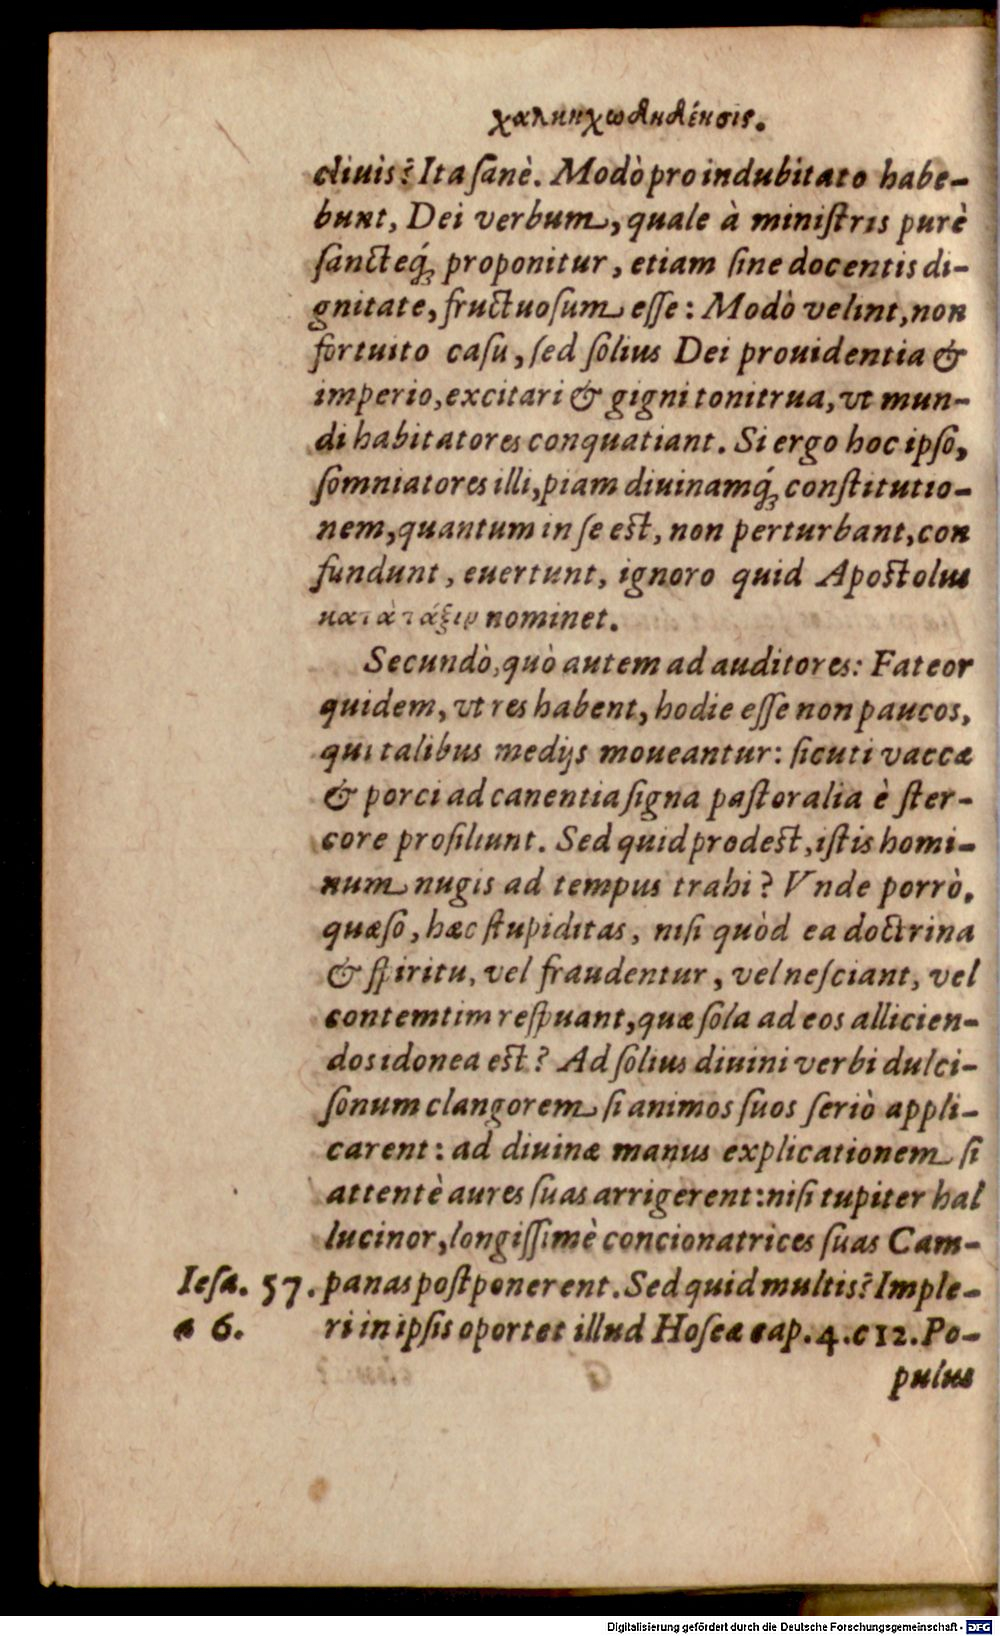 χαλκηχωδκδένσις.
cliuis? Ita sanè. Modò pro indubitato habe-
bunt, Dei verbum, quale à ministris purè
sancteq́; proponitur, etiam sine docentis di-
gnitate, fructuosum esse: Modò velint, non
fortuito casu, sed solius Dei prouidentia &
imperio, excitari & gigni tonitrua, vt mun-
di habitatores conquatiant. Si ergo hoc ipso,
somniatores illi, piam diuinamq́; constitutio-
nem, quantum in se est, non perturbant, con
fundunt, euertunt, ignoro quid Apostolus
κατὰ τάξιν nominet.
Secundò, quò autem ad auditores: Fateor
quidem, vt res habent, hodie esse non paucos,
qui talibus medijs moueantur: sicuti vaccæ
& porci ad canentia signa pastoralia è ster-
core prosiliunt. Sed quid prodest, istis homi-
num nugis ad tempus trahi? Vnde porrò,
quæso, hæc stupiditas, nisi quòd ea doctrina
& spiritu, vel fraudentur, vel nesciant, vel
contemtim respuant, quæ sola ad eos allicien-
dos idonea est? Ad solius diuini verbi dulci-
sonum clangorem si animos suos seriò appli-
carent: ad diuinæ manus explicationem si
attentè aures suas arrigerent: nisi tupiter hal
lucinor, longissimè concionatrices suas Cam-
Iesa. 57. panas postponerent. Sed quid multis? Imple-
a 6. ri in ipsis oportet illud Hoseæ cap. 4. c 12. Po-
pulus
Digitalisierung gefördert durch die Deutsche Forschungsgemeinschaft - DFG